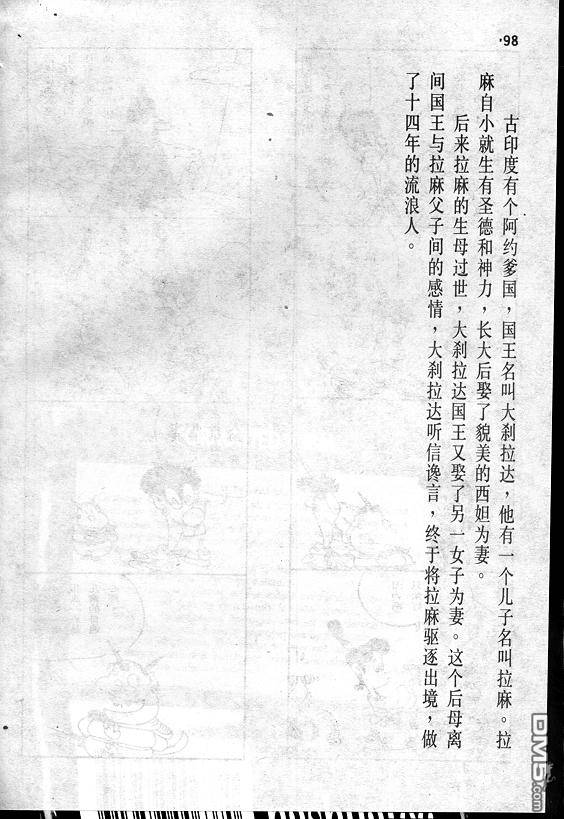 ·98
古印度有个阿约爹国，国王名叫大刹拉达，他有一个儿子名叫拉麻。拉
麻自小就生有圣德和神力，长大后娶了貌美的西妲为妻。
后来拉麻的生母过世，大刹拉达国王又娶了另一女子为妻。这个后母离
间国王与拉麻父子间的感情，大刹拉达听信谗言，终于将拉麻驱逐出境，做
了十四年的流浪人。
DM5.com